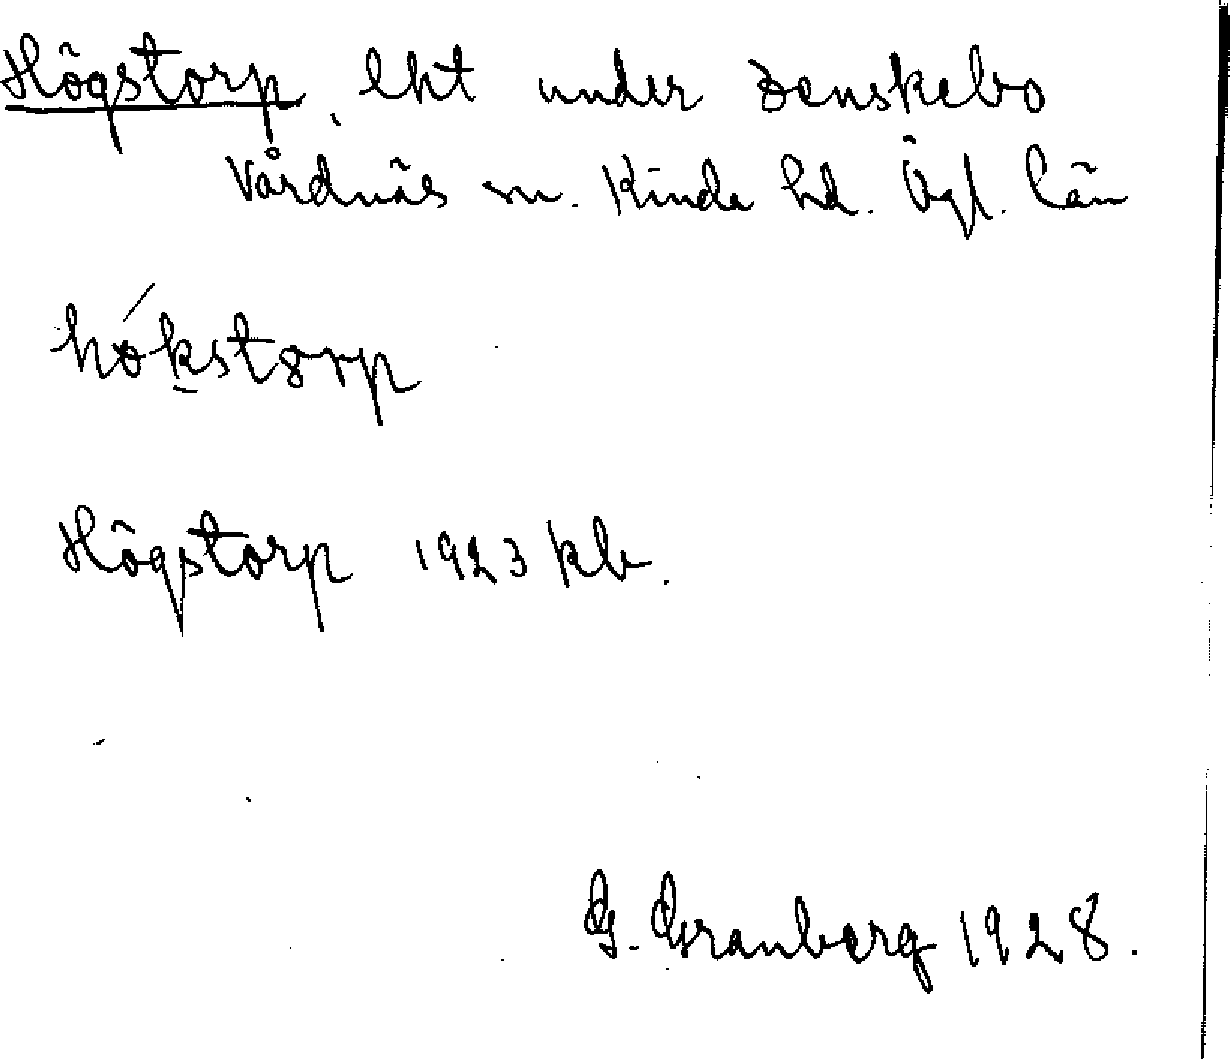 Högstorp, lht under Zenskebo
Vårdnäs sn. Kinda hd. Ögl. län
hókstorp
Högstorp 1923 kb.
G. Granberg 1928.